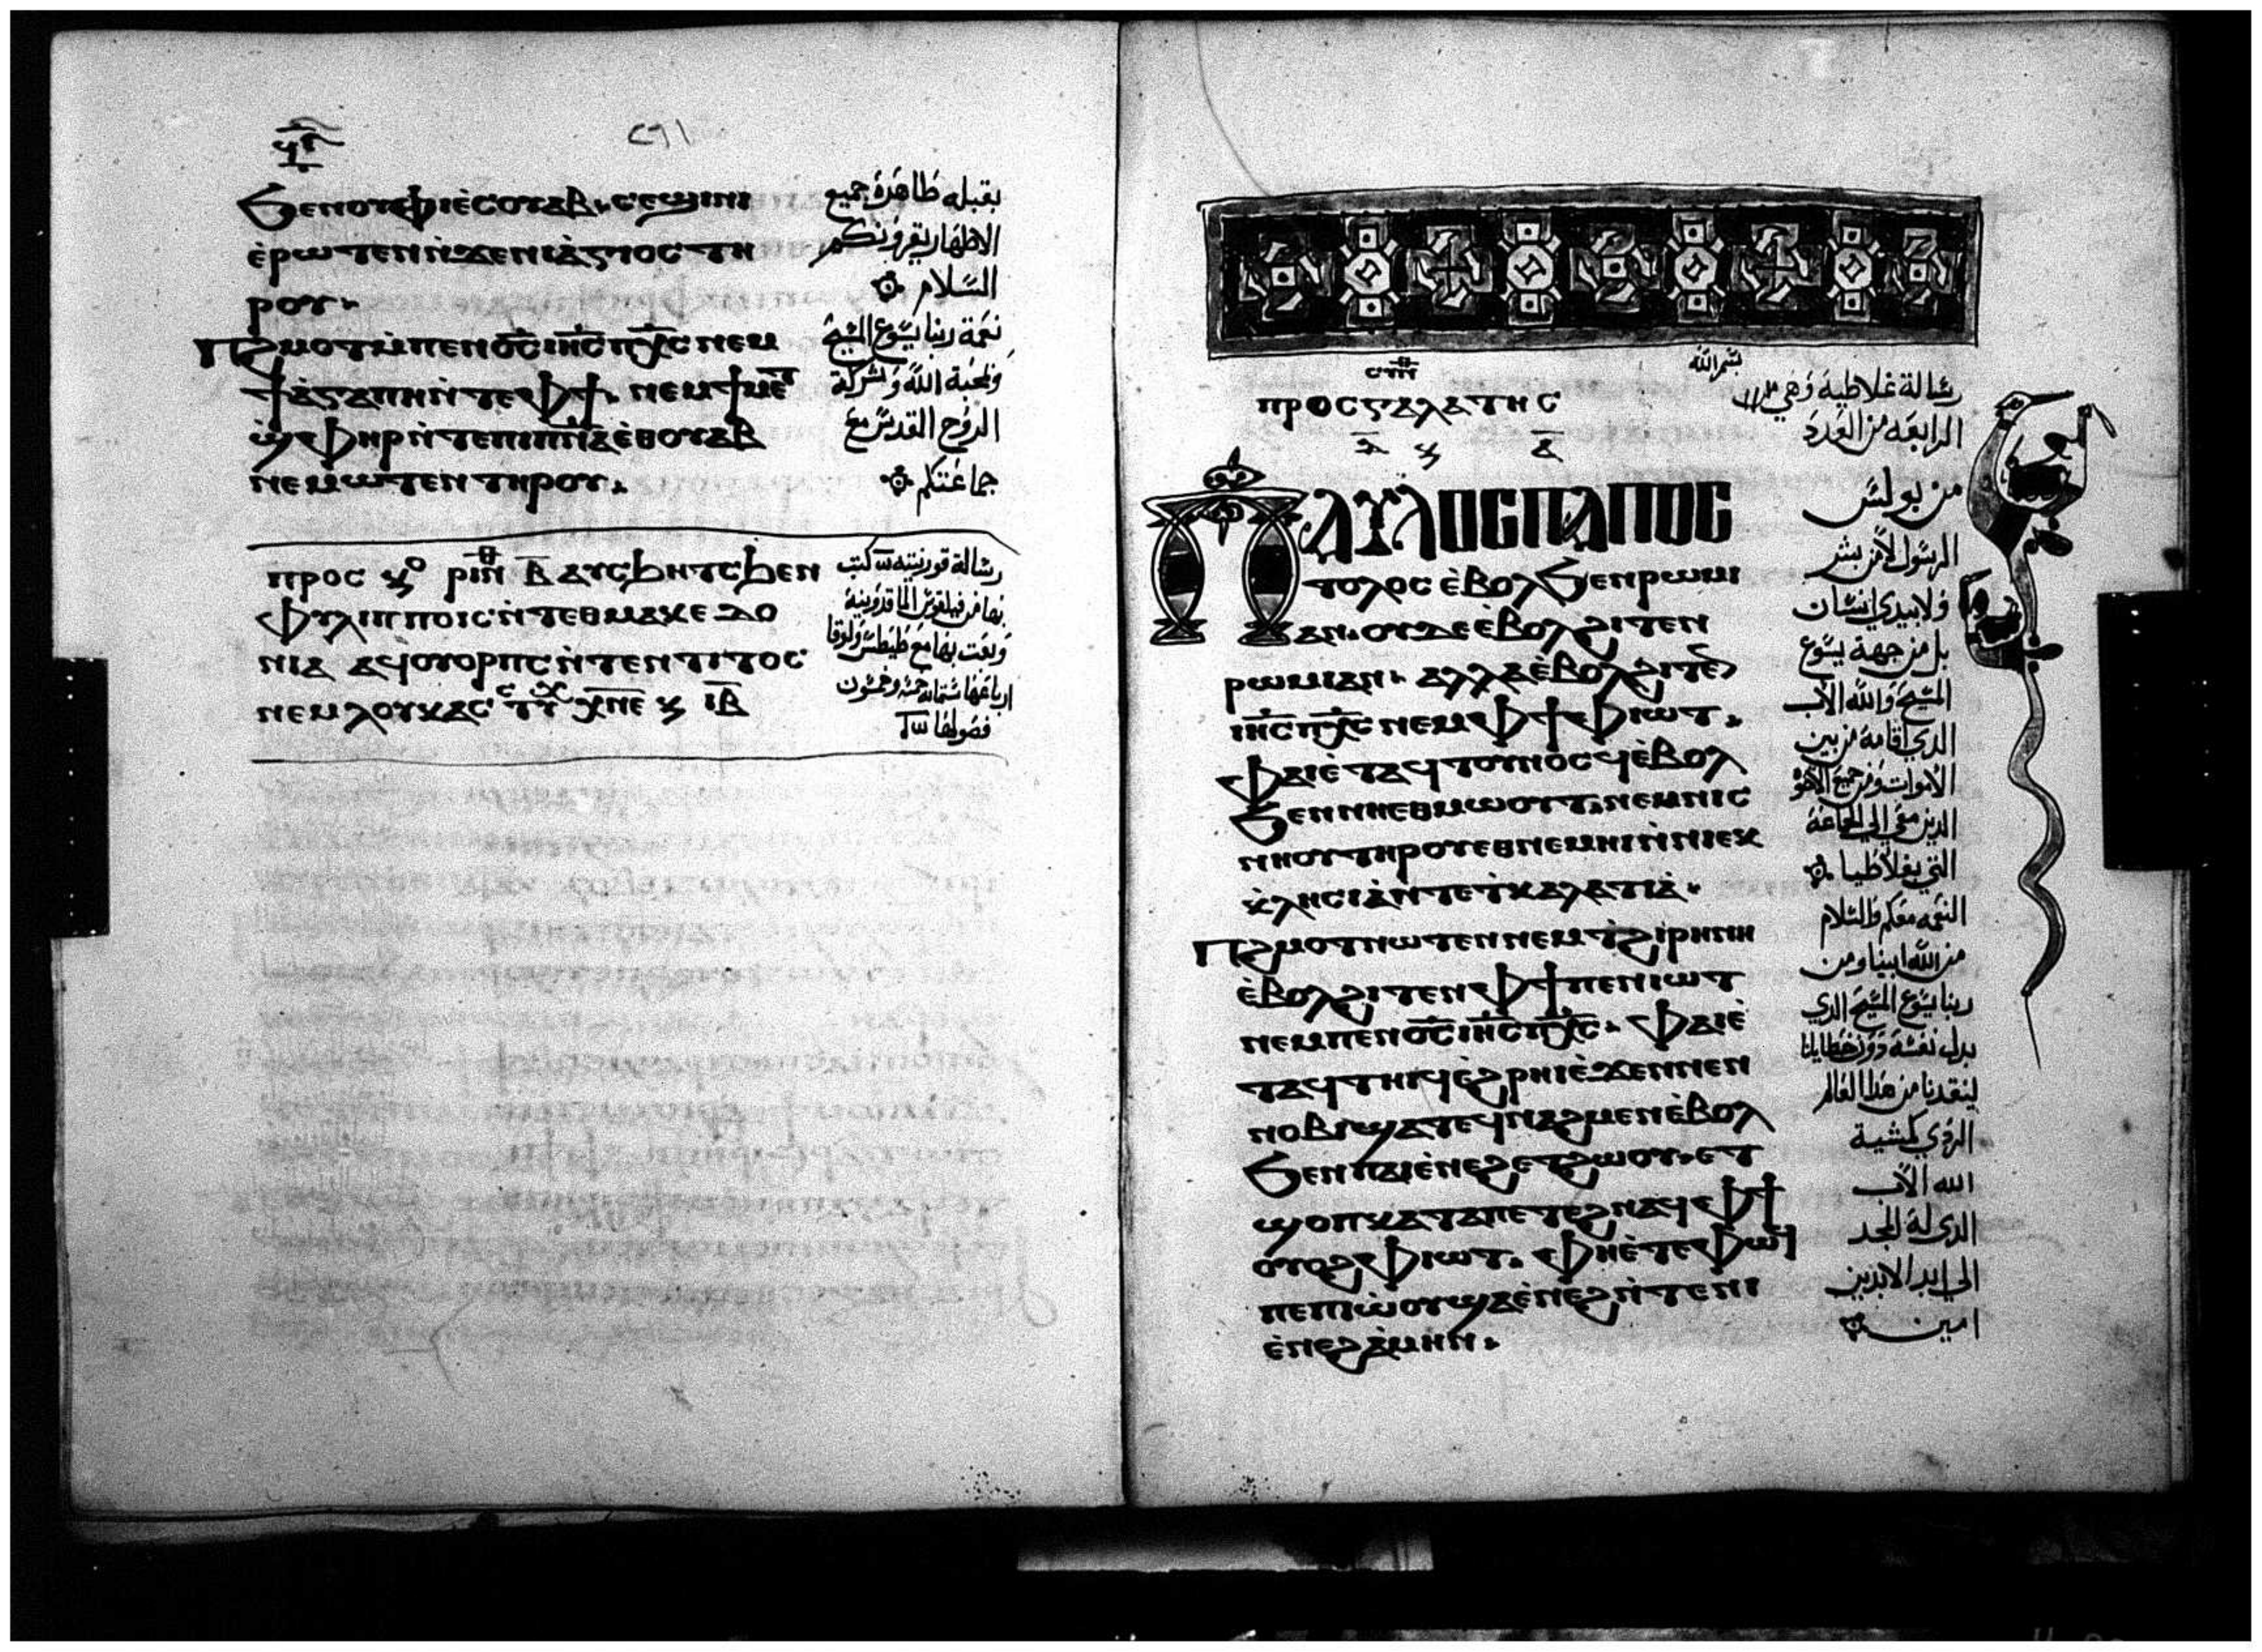 ϧⲉⲛⲟⲩⲫⲓⲉ̀ⲥⲟⲩⲁⲃ· ⲥⲉϣⲓⲛⲓ
ⲉ̀ⲣⲱⲧⲉⲛⲛ̀ϫⲉⲛⲓⲁ̀ⲅⲓⲟⲥ ⲧⲏ
ⲣⲟⲩ·
Ⲡϩⲙⲟⲧⲙ̀ⲡⲉⲛⲟ̅ⲥ̅ ⲓⲏ̅ⲥ̅ ⲡⲭ̅ⲥ̅ ⲛⲉⲙ
ϯⲁ̀ⲅⲁⲡⲏⲛ̀ⲧⲉⲫϯ· ⲛⲉⲙϯⲙⲉⲧ
ϣ̀ⲫⲏⲣⲛ̀ⲧⲉⲡⲓⲡ̅ⲛ̅ⲁ̅ⲉ̀ⲑⲟⲩⲁⲃ
ⲛⲉⲙⲱⲧⲉⲛ ⲧⲏⲣⲟⲩ·
بقبله طاهرة جميع
الاطهار يقرونكم
السلام
نعمة ربنا يسوع المسيح
ومحبة الله وشركة
الروح القدس مع
جماعتكم
ⲡⲣⲟⲥ ⲕⲟ ⲣⲓⲛⲑ ⲃ̅ ⲁⲩⲥϧⲏⲧⲥϧⲉⲛ
ⲫⲩⲗⲓⲡⲡⲟⲓⲥⲛ̀ⲧⲉⲑⲙⲁⲕⲉⲇⲟ
ⲛⲓⲁ ⲁϥⲟⲩⲟⲣⲡⲥ ⲛ̀ⲧⲉⲛ ⲧⲓⲧⲟⲥ
ⲛⲉⲙⲗⲟⲩⲕⲁⲥ ⲥⲧⲩⲭ ⲭ̅ⲛ̅ⲉ̅ ⲕ ⲓ̅ⲃ̅
رسالة قورنتيه كتب
بها من فيلبوس الماقدونية
وبعت بها مع طيطس ولوقا
ارباعها ستمايه خمسه وخمسون
فصولها
ⲥⲩⲛ ⲑ
بسم الله
ⲡⲣⲟⲥⲅⲁⲗⲁⲧⲏⲥ
ⲁ̅ ⲕ ⲇ̅
رسالة غلاطية وهي
الرابعة من العدد
Ⲡⲁⲩⲗⲟⲥⲡⲁⲡⲟⲥ
ⲧⲟⲗⲟⲥ ⲉ̀ⲃⲟⲗϧⲉⲛⲣⲱⲙⲓ
ⲁⲛ· ⲟⲩⲇⲉⲉ̀ⲃⲟⲗϩⲓⲧⲉⲛ
ⲣⲱⲙⲓⲁⲛ· ⲁⲗⲗⲁⲉ̀ⲃⲟⲗϩⲓⲧⲉⲛ
ⲓⲏ̅ⲥ̅ ⲡⲭ̅ⲥ̅ ⲛⲉⲙⲫϯⲫⲓⲱⲧ·
ⲫⲁⲓⲉ̀ⲧⲁϥⲧⲟⲩⲛⲟⲥϥⲉ̀ⲃⲟⲗ
ϧⲉⲛⲛⲏⲉⲑⲙⲱⲟⲩⲧ· ⲛⲉⲙⲛⲓⲥ
ⲛⲏⲟⲩⲧⲏⲣⲟⲩⲉⲑⲛⲉⲙⲏⲓⲛ̀ⲛⲓⲉⲕ
ⲕ̀ⲗⲏⲥⲓⲁ̀ⲛ̀ⲧⲉϯⲕⲁⲗⲁⲧⲓⲁ̀·
Ⲡϩⲙⲟⲧⲛⲱⲧⲉⲛⲛⲉⲙⲧ̀ϩⲓⲣⲏⲛⲏ
ⲉ̀ⲃⲟⲗϩⲓⲧⲉⲛⲫϯⲡⲉⲛⲓⲱⲧ
ⲛⲉⲙⲡⲉⲛⲟ̅ⲥ̅ ⲓⲏ̅ⲥ̅ ⲡⲭ̅ⲥ̅· ⲫⲁⲓⲉ̀
ⲧⲁϥⲧⲏⲓϥⲉ̀ϩⲣⲏⲓⲉ̀ϫⲉⲛⲛⲉⲛ
ⲛⲟⲃⲓϣⲁⲧⲉϥⲛⲁϩⲙⲉⲛⲉ̀ⲃⲟⲗ
ϧⲉⲛⲡⲁⲓⲉ̀ⲛⲉϩⲉⲧϩⲱⲟⲩ· ⲉⲧ
ϣⲟⲡⲕⲁⲧⲁⲡⲉⲧⲉϩⲛⲁϥⲙ̀ⲫϯ
ⲟⲩⲟϩⲫⲓⲱⲧ· ⲫⲏⲉ̀ⲧⲉⲫⲱϥ
ⲡⲉⲡⲓⲱ̀ⲟⲩϣⲁⲉ̀ⲛⲉϩⲛ̀ⲧⲉⲛⲓ
ⲉ̀ⲛⲉϩⲁ̀ⲙⲏⲛ·
من بولس
الرسول لا من بشر
ولا بيدي انسان
بل من جهة يسوع
المسيح والله الاب
الدي اقامه من بين
الاموات ومن جميع الاخوة
الدين معي الي الجماعة
التي بغلاطيا
النعمه معكم والسلام
من الله ابينا ومن
ربنا يسوع المسيح الدي
بدل نفسه دون خطايانا
لينقدنا من هدا العالم
الردي كمشية
الله الاب
الدي له المجد
الي ابد الابدين
امين